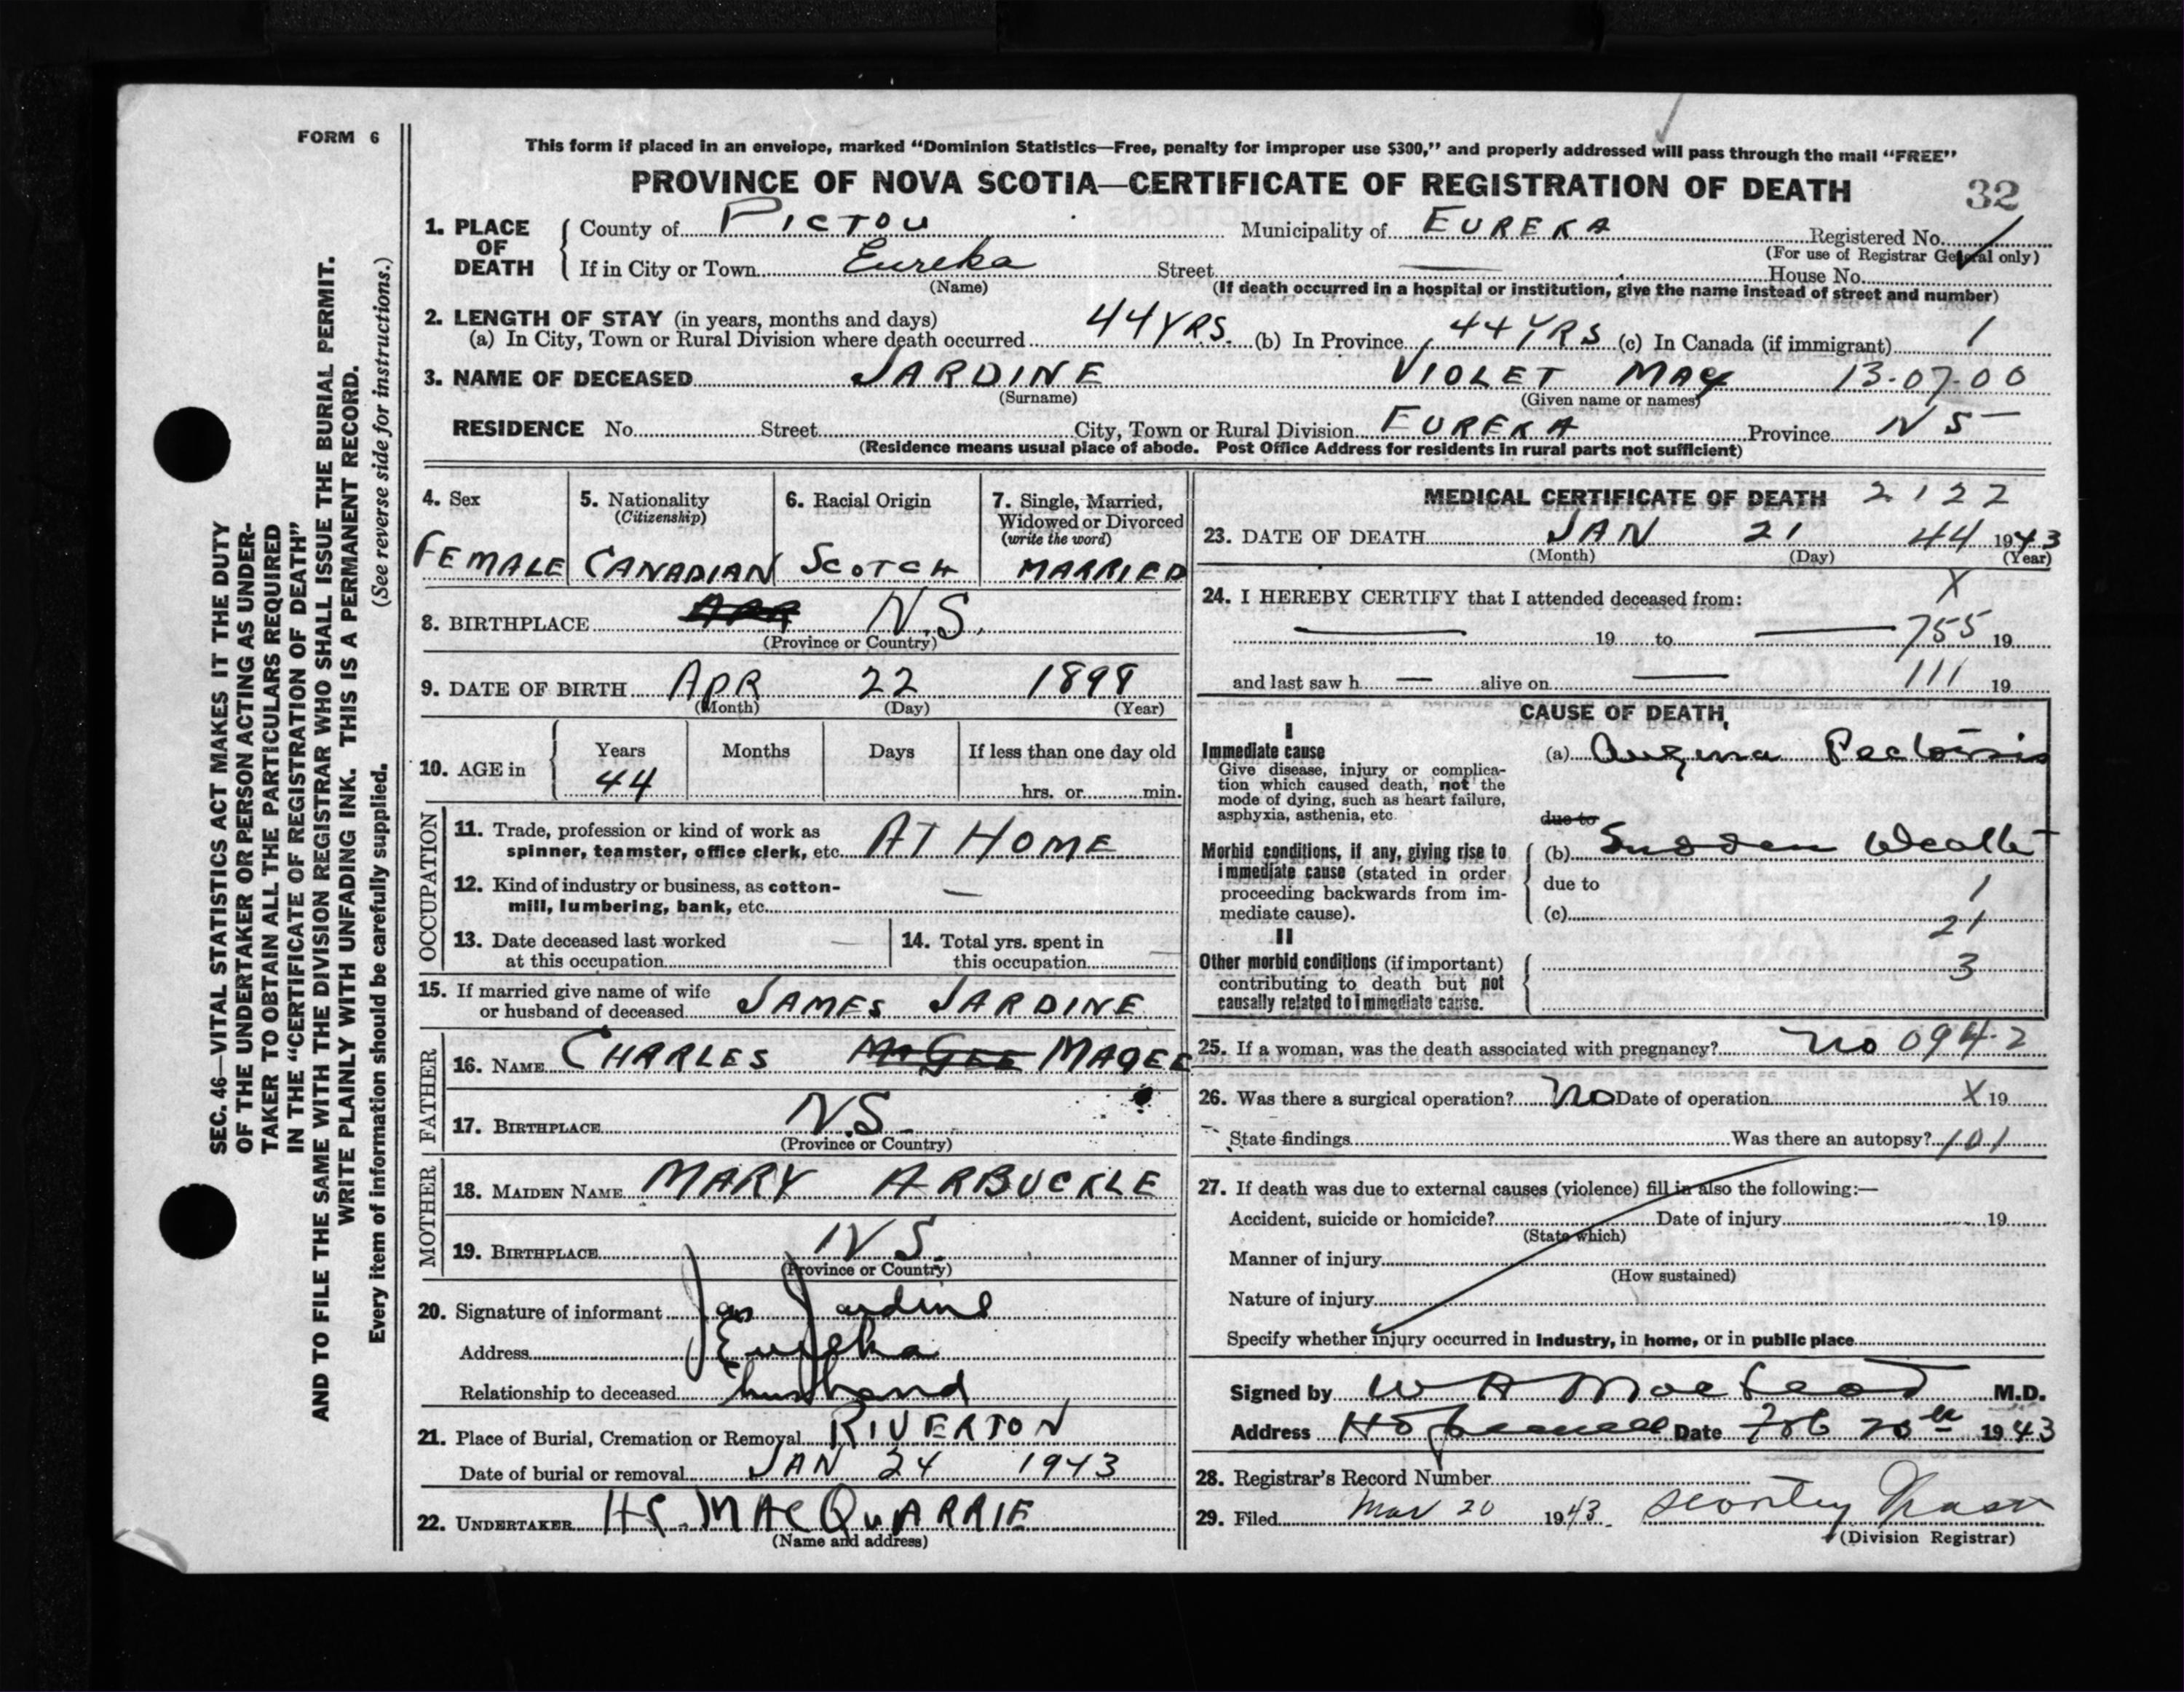 FORM 6
This form if placed in an envelope, marked "Dominion Statistics—Free, penalty for improper use $300," and properly addressed will pass through the mail "FREE"
PROVINCE OF NOVA SCOTIA—CERTIFICATE OF REGISTRATION OF DEATH 32
1. PLACE OF DEATH
County of PICTOU Municipality of EUREKA Registered No. 1
(For use of Registrar General only)
If in City or Town Eureka Street — House No.
(Name) (If death occurred in a hospital or institution, give the name instead of street and number)
2. LENGTH OF STAY (in years, months and days)
(a) In City, Town or Rural Division where death occurred 44 YRS. (b) In Province 44 YRS (c) In Canada (if immigrant) 1
3. NAME OF DECEASED JARDINE VIOLET MAY 13-07-00
(Surname) (Given name or names)
RESIDENCE No. Street City, Town or Rural Division EUREKA Province NS
(Residence means usual place of abode. Post Office Address for residents in rural parts not sufficient)
4. Sex
FEMALE
5. Nationality
(Citizenship)
CANADIAN
6. Racial Origin
SCOTCH
7. Single, Married,
Widowed or Divorced
(write the word)
MARRIED
8. BIRTHPLACE APR N.S.
(Province or Country)
9. DATE OF BIRTH APR 22 1898
(Month) (Day) (Year)
10. AGE in
Years Months Days If less than one day old
44 hrs. or min.
OCCUPATION
11. Trade, profession or kind of work as
spinner, teamster, office clerk, etc. AT HOME
12. Kind of industry or business, as cotton-
mill, lumbering, bank, etc. —
13. Date deceased last worked
at this occupation —
14. Total yrs. spent in
this occupation —
15. If married give name of wife
or husband of deceased JAMES JARDINE
FATHER
16. NAME CHARLES McGEE MAGEE
17. BIRTHPLACE N.S.
(Province or Country)
MOTHER
18. MAIDEN NAME MARY ARBUCKLE
19. BIRTHPLACE N S.
(Province or Country)
20. Signature of informant Jas Jardine
Address Eureka
Relationship to deceased husband
21. Place of Burial, Cremation or Removal RIVERTON
Date of burial or removal JAN 24 1943
22. UNDERTAKER MACQUARRIE
(Name and address)
MEDICAL CERTIFICATE OF DEATH 2122
23. DATE OF DEATH JAN 21 44 1943
(Month) (Day) (Year)
24. I HEREBY CERTIFY that I attended deceased from: X
— 19 to — 755 19
and last saw h — alive on — 111 19
CAUSE OF DEATH
I
Immediate cause
Give disease, injury or complica-
tion which caused death, not the
mode of dying, such as heart failure,
asphyxia, asthenia, etc.
(a) Angina Pectoris
due to
Morbid conditions, if any, giving rise to
immediate cause (stated in order
proceeding backwards from im-
mediate cause).
(b) Sudden Death
due to 1
(c) 21
II
Other morbid conditions (if important)
contributing to death but not
causally related to immediate cause.
3
25. If a woman, was the death associated with pregnancy? no 094-2
26. Was there a surgical operation? no Date of operation X 19
State findings Was there an autopsy? 101
27. If death was due to external causes (violence) fill in also the following:—
Accident, suicide or homicide? Date of injury 19
(State which)
Manner of injury
(How sustained)
Nature of injury
Specify whether injury occurred in industry, in home, or in public place
Signed by W A MacLeod M.D.
Address Hopewell Date Feb 20th 1943
28. Registrar's Record Number
29. Filed Mar 20 1943.
(Division Registrar)
SEC. 46—VITAL STATISTICS ACT MAKES IT THE DUTY
OF THE UNDERTAKER OR PERSON ACTING AS UNDER-
TAKER TO OBTAIN ALL THE PARTICULARS REQUIRED
IN THE "CERTIFICATE OF REGISTRATION OF DEATH"
AND TO FILE THE SAME WITH THE DIVISION REGISTRAR WHO SHALL ISSUE THE BURIAL PERMIT.
WRITE PLAINLY WITH UNFADING INK. THIS IS A PERMANENT RECORD.
Every item of information should be carefully supplied. (See reverse side for instructions.)